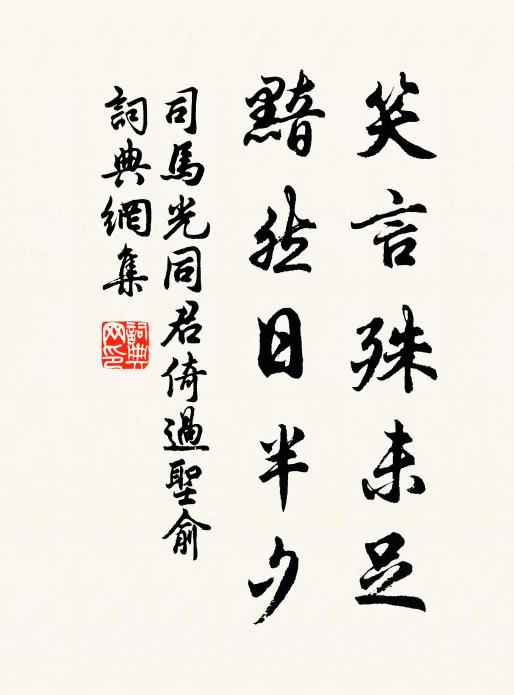 笑言殊未足
黯然日半夕
司馬光同君倚過聖俞
詞典網集
詞典网印